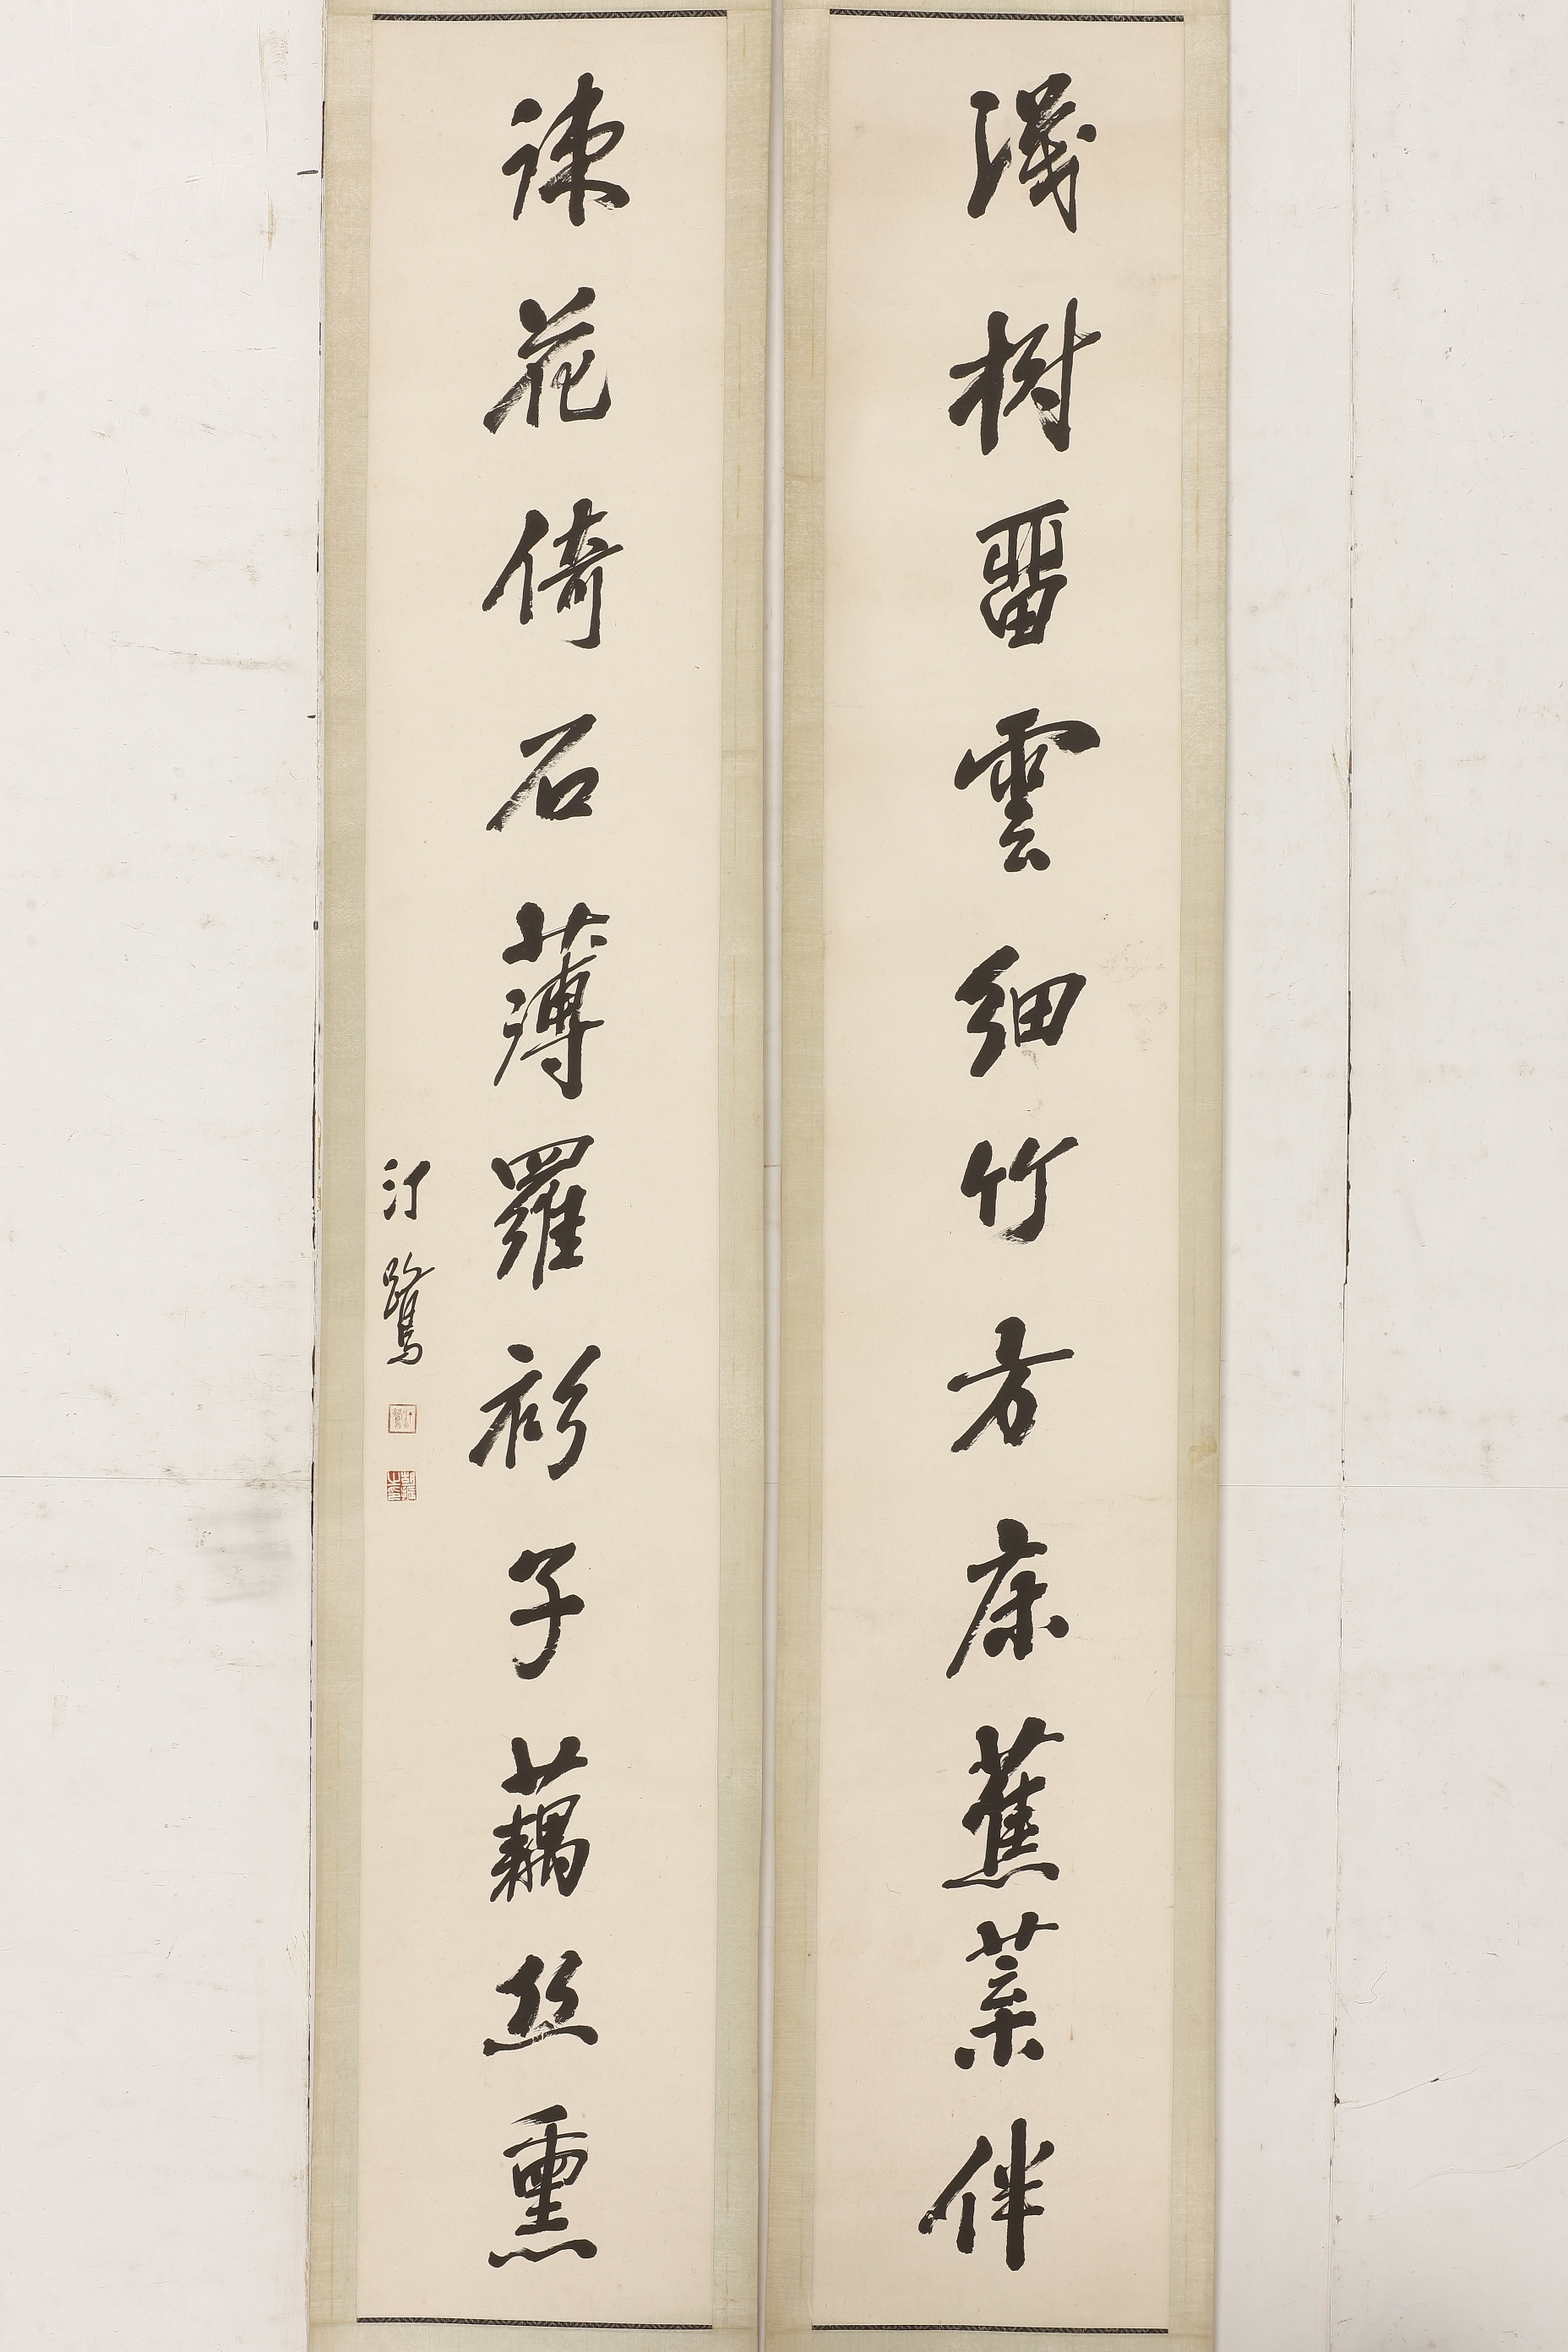 淺樹畱雲細竹方床蕉葉伴
疎花倚石薄羅衫子藕絲熏
汀鷺
胡振之印